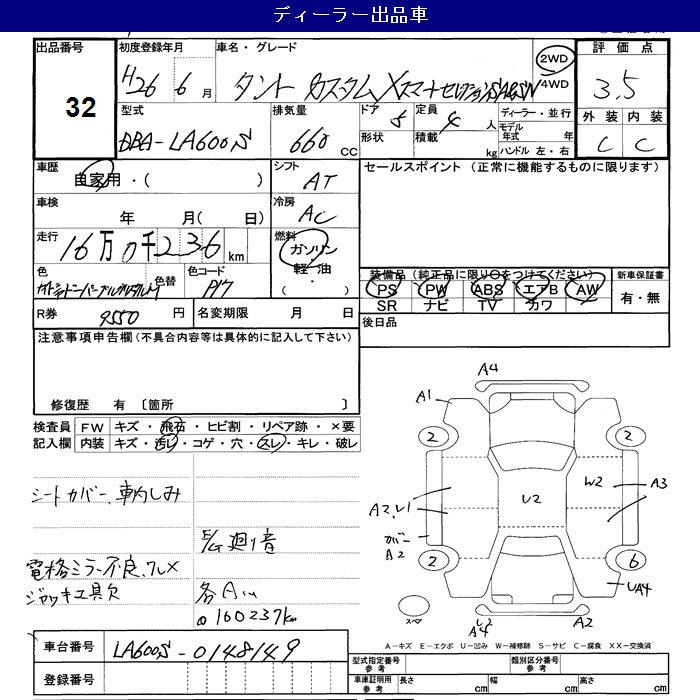 ディーラー出品車
出品番号 初度登録年月 車名・グレード 評価点
32
H26年 6月 タント カスタム XスマートセレクションSA&SN 2WD 4WD 3.5
型式 排気量 ドア 定員 ディーラー・並行 外装 内装
DBA-LA600S 660 CC 5 4人 モデル年式 年 C C
形状 積載 kg ハンドル 左・右
車歴 シフト セールスポイント (正常に機能するものに限ります)
自家用・( ) AT
車検 冷房
年 月( 日) AC
走行 燃料
16万0千236 km ガソリン
軽油
( )
色 色替 色コード 装備品 (純正品に限り○をつけてください) 新車保証書
PS PW ABS エアB AW 有・無
SR ナビ TV カワ
R券 9550円 名変期限 月 日 後日品
注意事項申告欄 (不具合内容等は具体的に記入して下さい)
修復歴 有 〔箇所 〕
検査員 FW キズ・飛石・ヒビ割・リペア跡・×要
記入欄 内装 キズ・汚レ・コゲ・穴・スレ・キレ・破レ
シートカバー、車内しみ
E/G廻り音
電格ミラー不良、フレ×
ジャッキ工具欠
各Aハ
160237km
A4
A1
2 2
W2 A3
U2
A2、U1
カバー
A2
2 6
UA4
スペア
U2
A4 A2
A-キズ E-エクボ U-凹み W-補修跡 S-サビ C-腐食 XX-交換済
車台番号 LA600S-0148149
登録番号
型式指定番号 参考 類別区分番号 参考
車庫証明用 参考 長さ cm 幅 cm 高さ cm